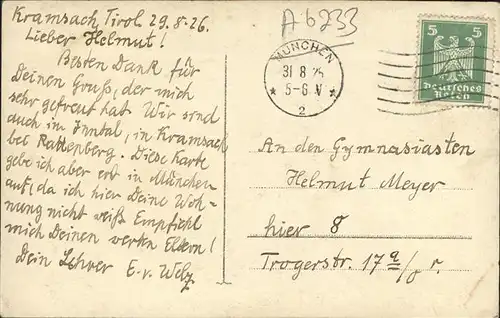 Kramsach Tirol 29.8.26.
Lieber Helmut!
Besten Dank für
Deinen Gruß, der mich
sehr gefreut hat. Wir sind
auch im Inntal, in Kramsach
bei Rattenberg. Diese Karte
gebe ich aber erst in München
auf, da ich hier Deine Woh-
nung nicht weiß. Empfiehl
mich Deinen werten Eltern!
Dein Lehrer E. v. Welz
A 6233
MÜNCHEN
31 8 25
5-6 V
2
5 5
Deutsches
Reich
An den Gymnasiasten
Helmut Meyer
hier 8
Trogerstr. 17 a/0 r.